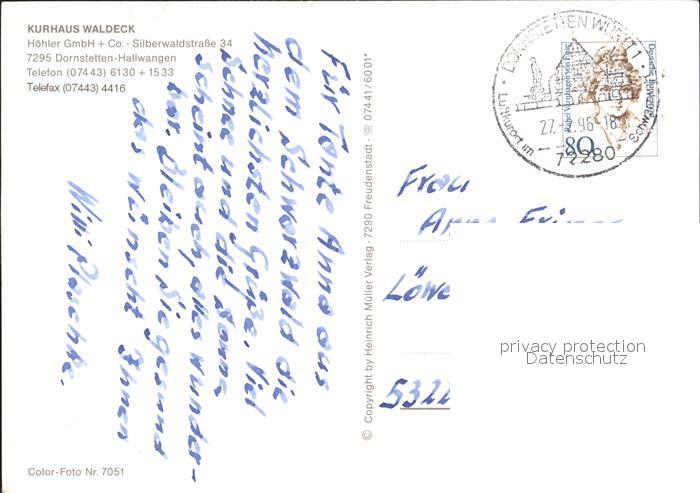 KURHAUS WALDECK
Höhler GmbH + Co. · Silberwaldstraße 34
7295 Dornstetten-Hallwangen
Telefon (07443) 6130 + 1533
Telefax (07443) 4416
Für Tante Anna aus
dem Schwarzwald die
herzlichsten Grüße. Viel
Schnee und die Sonne
scheint auch, alles wunder-
bar. Bleiben Sie gesund
das wünscht Ihnen
Willi
Color-Foto Nr. 7051
© Copyright by Heinrich Müller Verlag · 7290 Freudenstadt · ☏ 07441/6001*
DORNSTETTEN WÜRTT 1
Luftkurort im Schw
27. 2.96-18
72280
Deutsche Bundespost
80
Frau
Anna
Löwe
5322
privacy protection
Datenschutz